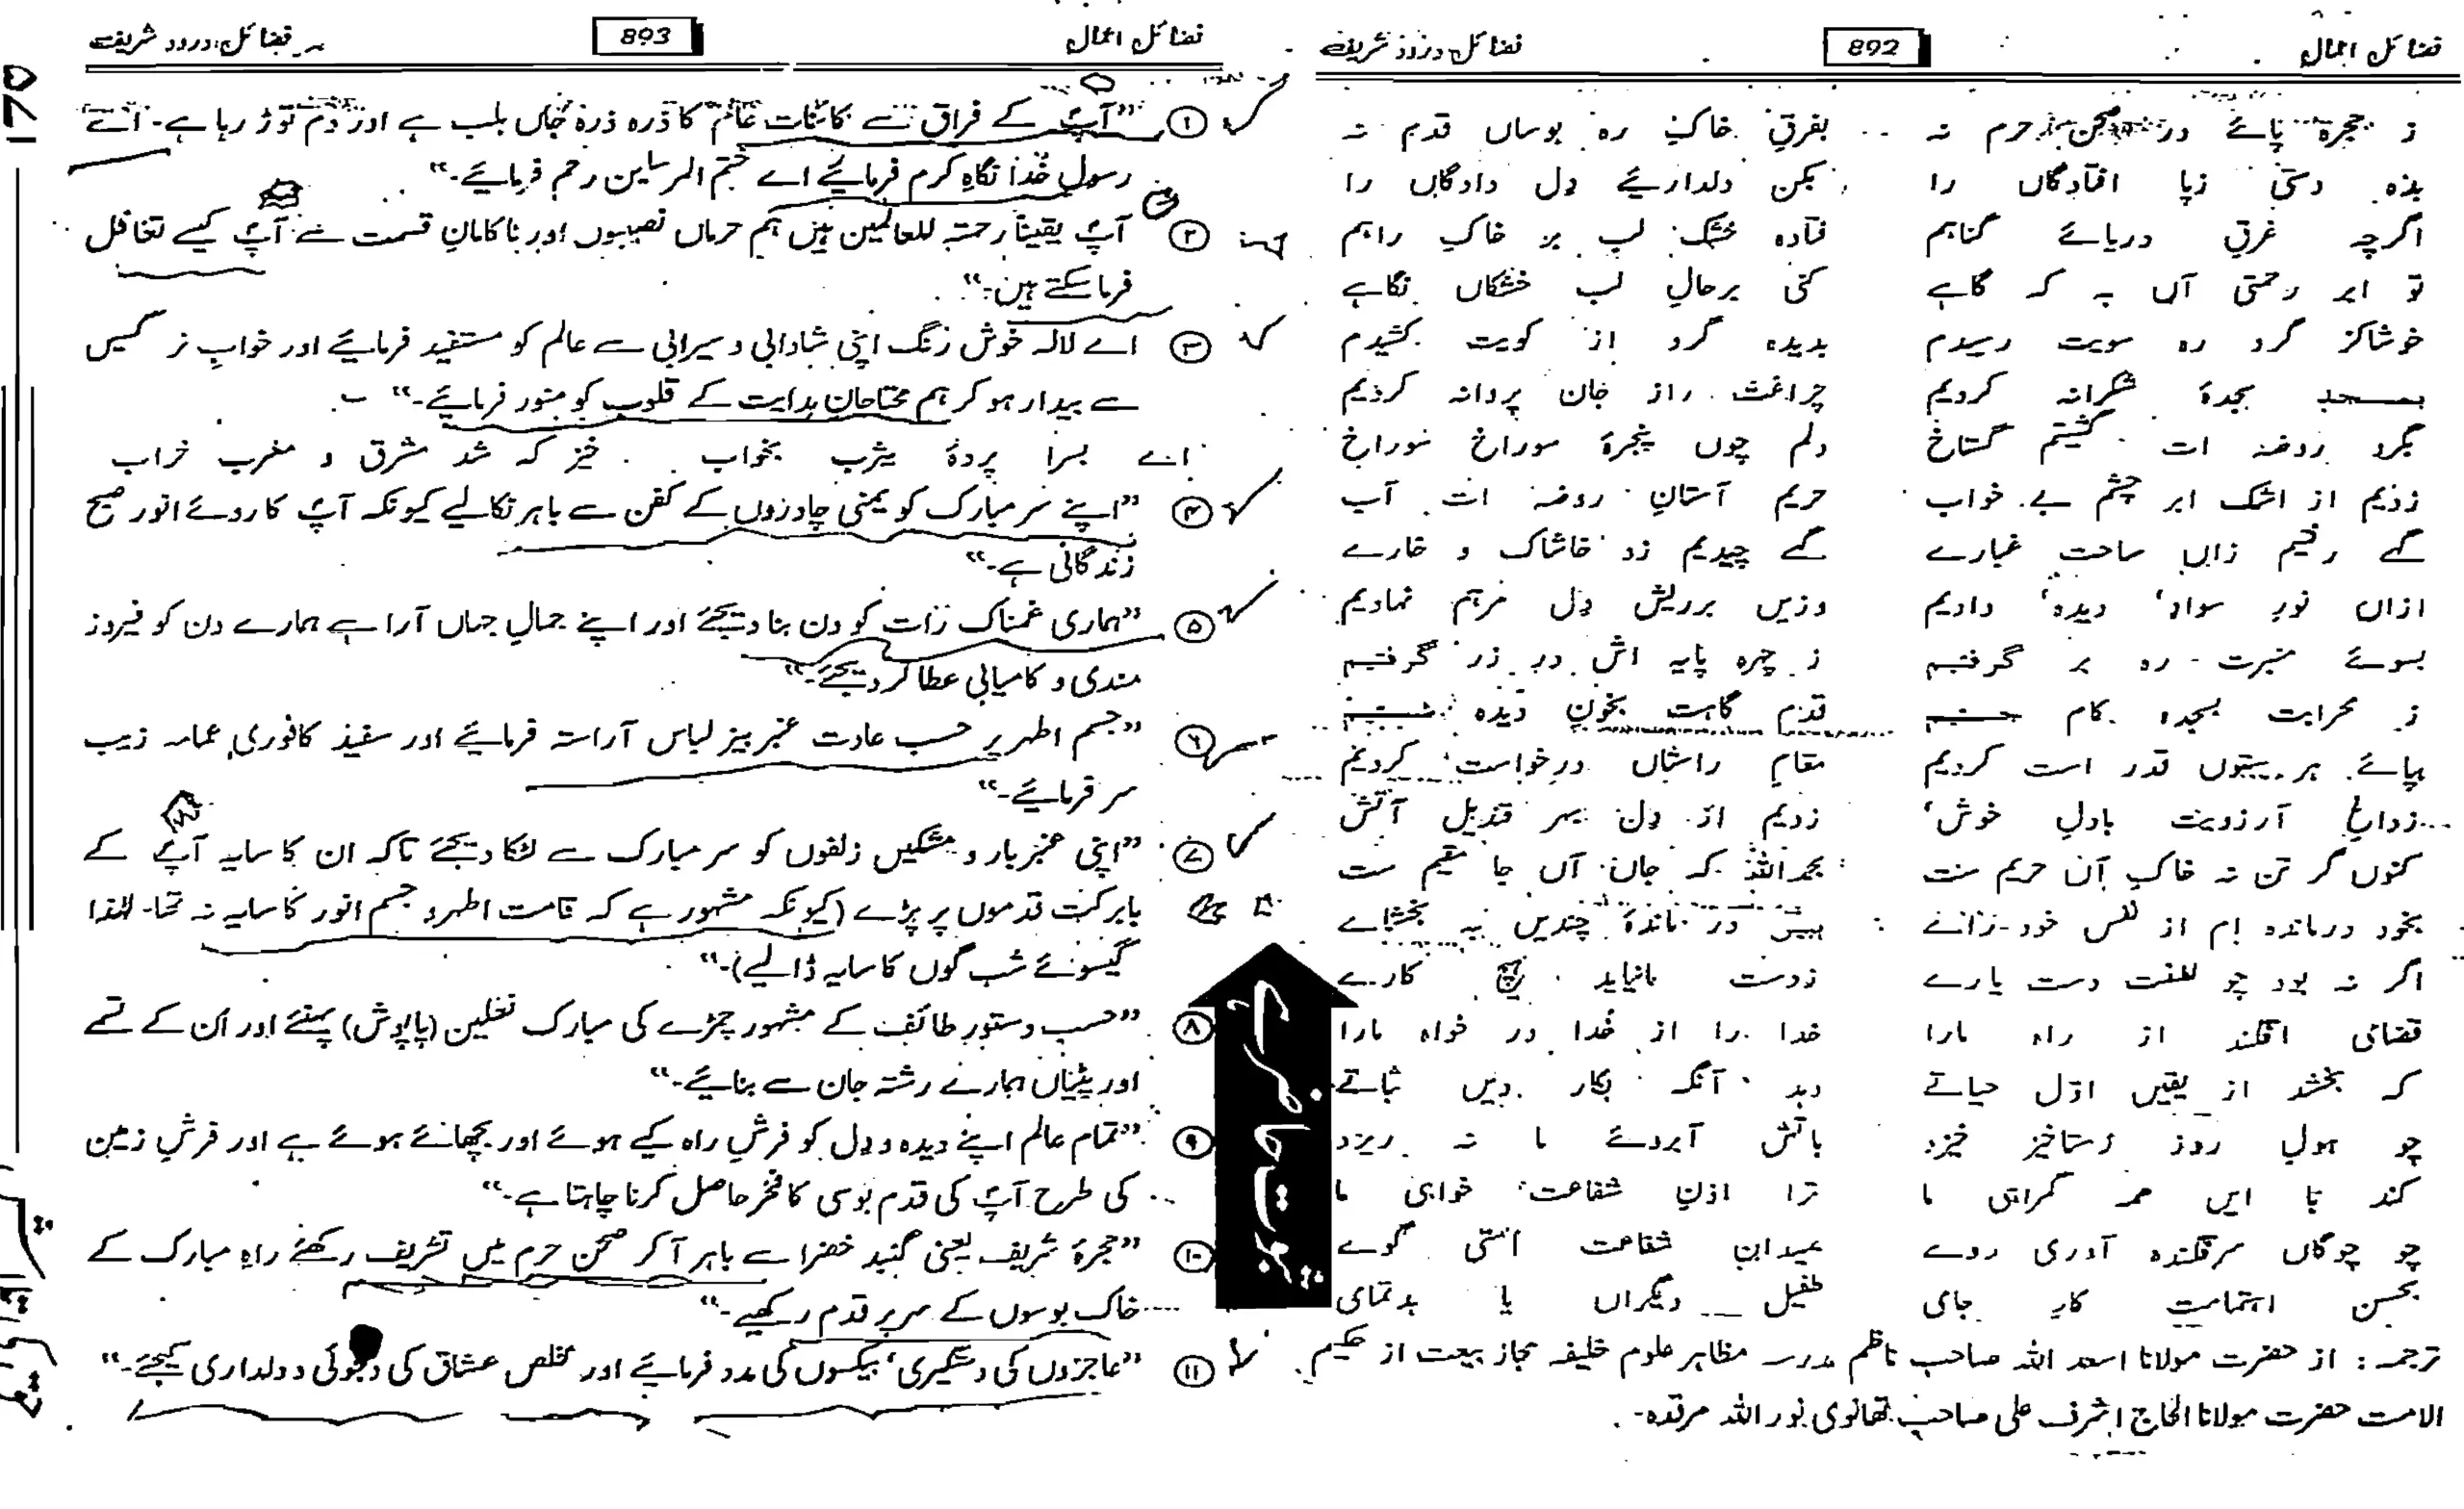 فضائل اعمال 892 فضائل درود شریف
ز حجرہ پائے در صحن حرم نہ بفرق خاک رہ بوساں قدم نہ
بدہ دستی زپا افتادگاں را بکن دلداریے دل دادگاں را
اگرچہ غرق دریائے گناہم فتادہ خشک لب بر خاک راہم
تو ابر رحمتی آں بہ کہ گاہے کنی برحال لب خشکاں نگاہے
خوشاکز گرد رہ سویت رسیدم بدیدہ گرد از کویت کشیدم
بمسجد سجدۂ شکرانہ کردیم چراغت راز جان پروانہ کردیم
بگرد روضہ ات گشتیم گستاخ دلم چوں پنجرۂ سوراخ سوراخ
زدیم از اشک ابر چشم بے خواب حریم آستان روضہ ات آب
گہے رفتیم زاں ساحت غبارے گہے چیدیم زد خاشاک و خارے
ازاں نور سواد دیدہ دادیم وزیں برریش دل مرہم نہادیم
بسوئے منبرت رہ بر گرفتیم ز چہرہ پایہ اش در زر گرفتیم
ز محرابت بسجدہ کام جستیم قدم گاہت بخون دیدہ شستیم
بپائے ہر ستوں قدر است کردیم مقام راستاں درخواست کردیم
زداغ آرزویت بادل خوش زدیم از دل بہر قندیل آتش
کنوں گر تن نہ خاک آن حریم ست بحمداللہ کہ جان آں جا مقیم ست
بخود درماندہ ام از نفس خود رائے ببیں در ماندۂ چندیں بہ بخشاے
اگر نہ بود چو لطفت دست یارے زدست مانیاید ہیچ کارے
قضای افگند از راہ مارا خدا را از خدا در خواہ مارا
کہ بخشد از یقیں اول حیاتے دہد آنگہ بکار دیں ثباتے
چو ہول روز رستاخیز خیزد باتش آبروئے ما نہ ریزد
کند با ایں ہمہ گمراہی ما ترا اذن شفاعت خواہی ما
چو چوگاں سرفگندہ آوری روے بمیدان شفاعت امتی گوے
بحسن اہتمامت کار جامی طفیل دیگراں یا بدتمامی
ترجمہ: از حضرت مولانا اسعد اللہ صاحب ناظم مدرسہ مظاہر علوم خلیفہ مجاز بیعت از حکیم
الامت حضرت مولانا الحاج اشرف علی صاحب تھانوی نور اللہ مرقدہ۔
ثبوت حاضر ہے
فضائل اعمال 893 فضائل درود شریف
① "آپؐ کے فراق سے کائنات عالم کا ذرہ ذرہ جاں بلب ہے اور دم توڑ رہا ہے۔ اے
رسول خدا نگاہ کرم فرمائیے اے ختم المرسلین رحم فرمائیے۔"
② آپؐ یقیناً رحمتہ للعالمین ہیں ہم حرماں نصیبوں اور ناکامان قسمت سے آپؐ کیسے تغافل
فرما سکتے ہیں۔"
③ اے لالہ خوش رنگ اپنی شادابی و سیرابی سے عالم کو مستفید فرمائیے اور خواب نرگسیں
سے بیدار ہو کر ہم محتاجان ہدایت کے قلوب کو منور فرمائیے۔"
اے بسرا پردۂ یثرب بخواب خیز کہ شد مشرق و مغرب خراب
④ "اپنے سر مبارک کو یمنی چادروں کے کفن سے باہر نکالیے کیونکہ آپؐ کا روئے انور صبح
زندگانی ہے۔"
⑤ "ہماری غمناک رات کو دن بنا دیجئے اور اپنے جمال جہاں آرا سے ہمارے دن کو فیروز
مندی و کامیابی عطا کر دیجئے۔"
⑥ "جسم اطہر پر حسب عادت عنبر بیز لباس آراستہ فرمائیے اور سفید کافوری عمامہ زیب
سر فرمائیے۔"
⑦ "اپنی عنبر بار و مشکیں زلفوں کو سر مبارک سے لٹکا دیجئے تاکہ ان کا سایہ آپؐ کے
بابرکت قدموں پر پڑے (کیونکہ مشہور ہے کہ قامت اطہر و جسم انور کا سایہ نہ تھا۔ لہٰذا
گیسوئے شب گوں کا سایہ ڈالیے)۔"
⑧ "حسب دستور طائف کے مشہور چمڑے کی مبارک نعلین (پاپوش) پہنئے اور ان کے تسمے
اور پٹیاں ہمارے رشتہ جان سے بنائیے۔"
⑨ "تمام عالم اپنے دیدہ و دل کو فرش راہ کیے ہوئے اور بچھائے ہوئے ہے اور فرش زمین
کی طرح آپؐ کی قدم بوسی کا فخر حاصل کرنا چاہتا ہے۔"
⑩ "حجرۂ شریف یعنی گنبد خضرا سے باہر آ کر صحن حرم میں تشریف رکھئے راہ مبارک کے
خاک بوسوں کے سر پر قدم رکھیے۔"
⑪ "عاجزوں کی دستگیری، بیکسوں کی مدد فرمائیے اور مخلص عشاق کی دلجوئی و دلداری کیجئے۔"
170